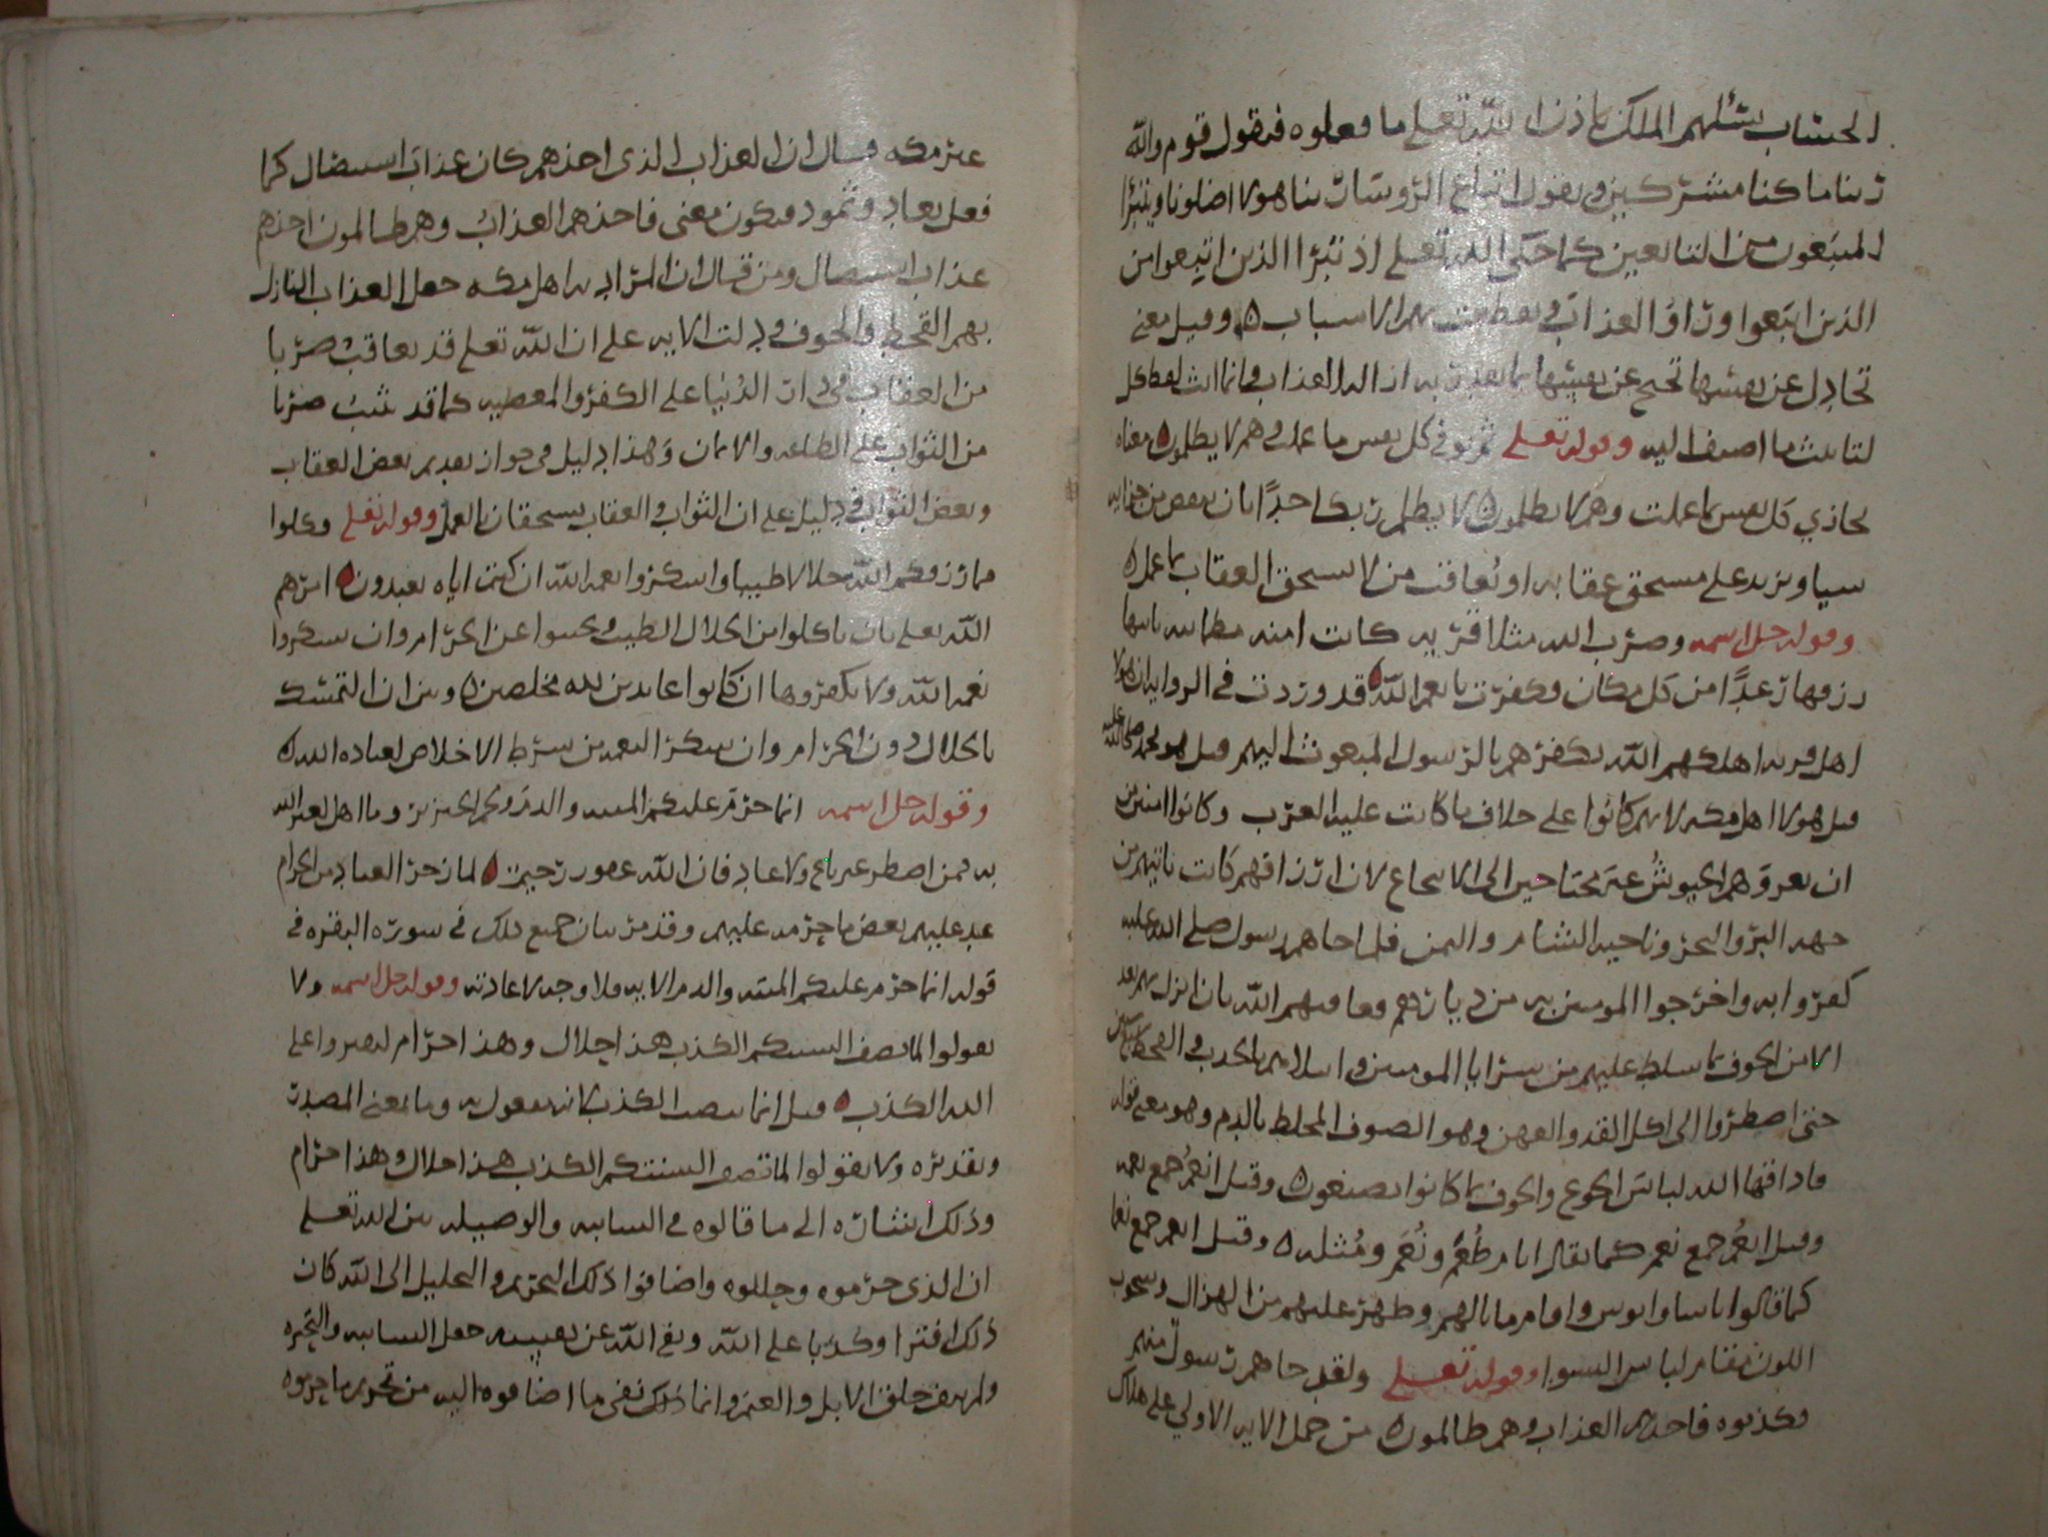 الحساب يسئلهم الملك باذن الله تعلى ما فعلوه فيقول قوم والله
ربنا ما كنا مشركين ويقول اتباع الروسا ربنا هولا اضلونا ويتبرا
المتبعون من التابعين كما حكى الله تعلى اذ تبرا الذين اتبعوا من
الذين اتبعوا وراوا العذاب وتقطعت بهم الاسباب ه وقيل معنى
تجادل عن نفسها تحتج عن نفسها بما تقدر به ازاله العذاب وانما انث لفظ كل
لتانيث ما اضيف اليه وقوله تعلى ثم توفى كل نفس ما عملت وهم لا يظلمون ه معناه
تجازي كل نفس بما عملت وهم لا يظلمون ه لا يظلم ربك احدًا بان ينقص من جزايه
شيا ويزيد على مستحق عقابه او يُعاقب من لا يستحق العقاب بما عمل ه
وقوله جل اسمه وضرب الله مثلا قريه كانت امنه مطمئنه ياتيها
رزقها رغدًا من كل مكان وكفرت بانعم الله ه قد وردت في الروايه ان هولا
اهل قريه اهلكهم الله بكفرهم بالرسول المبعوث اليهم قيل هو محمد صلى الله عليه
قيل هولا اهل مكه لانهم كانوا على خلاف ما كانت عليه العرب وكانوا امنين من
ان يعروهم الجيوشُ غير محتاجين الى الانتجاع لان ارزاقهم كانت تاتيهم من
جهه البر والبحر وناحيه الشام واليمن فلما جاهم رسول صلى الله عليه
كفروا به واخرجوا المومنين به من ديارهم فعاقبهم الله بان ابزل بهم بعد
الامن الخوف بما سلط عليهم من سرايا المومنين وابتلاهم بالجدب في القحط سبع سنين
حتى اضطروا الى اكل القد والعهن وهو الصوف المخلط بالدم وهو معنى قوله
فاذاقها الله لباس الجوع والخوف بما كانوا يصنعون ه وقيل انعُم جمع نعمه
وقيل انعُم جمع نعم كما يقال ايام طُعُم ونُعم ومُثله ه وقيل انعم جمع نعما
كما قالوا باسا وابوس واقام ما بالهم وظهر عليهم من الهزال وشحوب
اللون مقام لباس السوا وقوله تعلى ولقد جاهم رسول منهم
فكذبوه فاخذهم العذاب وهم ظالمون ه من حمل الايه الاولي على هلاك
غير مكه وقال ان العذاب الذى اخذهم كان عذاب استيصال كما
فعل بعاد وثمود فيكون معنى فاخذهم العذاب وهم ظالمون اخذهم
عذاب استيصال ومن قال ان المراد به اهل مكه جعل العذاب النازل
بهم القحط والخوف ودلت الايه على ان الله تعلى قد يعاقب ضربا
من العقاب في دار الدُنيا على الكفر والمعصيه كما قد يثيب ضربا
من الثواب على الطاعه والايمان وهذا دليل في جواز تقديم بعض العقاب
وبعض الثواب ودليل على ان الثواب والعقاب يستحقان بالعمل وقوله تعلى وكلوا
مما رزقكم الله حلالا طيبا واشكروا نعمه الله ان كنتم اياه تعبدون ه امرهم
الله تعلى بان ياكلوا من الحلال الطيب ويجتنبوا عن الحرام وان يشكروا
نعم الله ولا يكفروها ان كانوا عابدين لله مخلصين ه وبين ان التمسك
بالحلال دون الحرام وان يشكر النعمه من شرط الاخلاص لعباده الله ه
وقوله جل اسمه انما حرم عليكم الميته والدم ولحم الخنزير وما اهل لغير الله
به فمن اضطر غير باغ ولا عاد فان الله غفور رحيم ه لما زجر العباد من الحرام
عد عليهم بعض ما حرمه عليهم وقد مر بيان جميع ذلك في سوره البقره في
قوله انما حرم عليكم الميته والدم الايه فلا وجه لاعادته وقوله جل اسمه ولا
تقولوا لما تصف السنتكم الكذب هذا حلال وهذا حرام لتفتروا على
الله الكذب ه قيل انما نصب الكذب لانه مفعول به وما بمعنى المصدر
وتقديره ولا تقولوا لما تصف السنتكم الكذب هذا حلال وهذا حرام
وذلك اشاره الى ما قالوه في السايبه والوصيله بين الله تعلى
ان الذى حرموه وحللوه واضافوا ذلك التحريم والتحليل الى الله كان
ذلك افترا وكذبا على الله ونفى الله عن نفسه جعل السايبه والبحيره
ولم ينف خلق الابل والغنم وانما ذلك نفى ما اضافوه اليه من تحريم ما حرموه